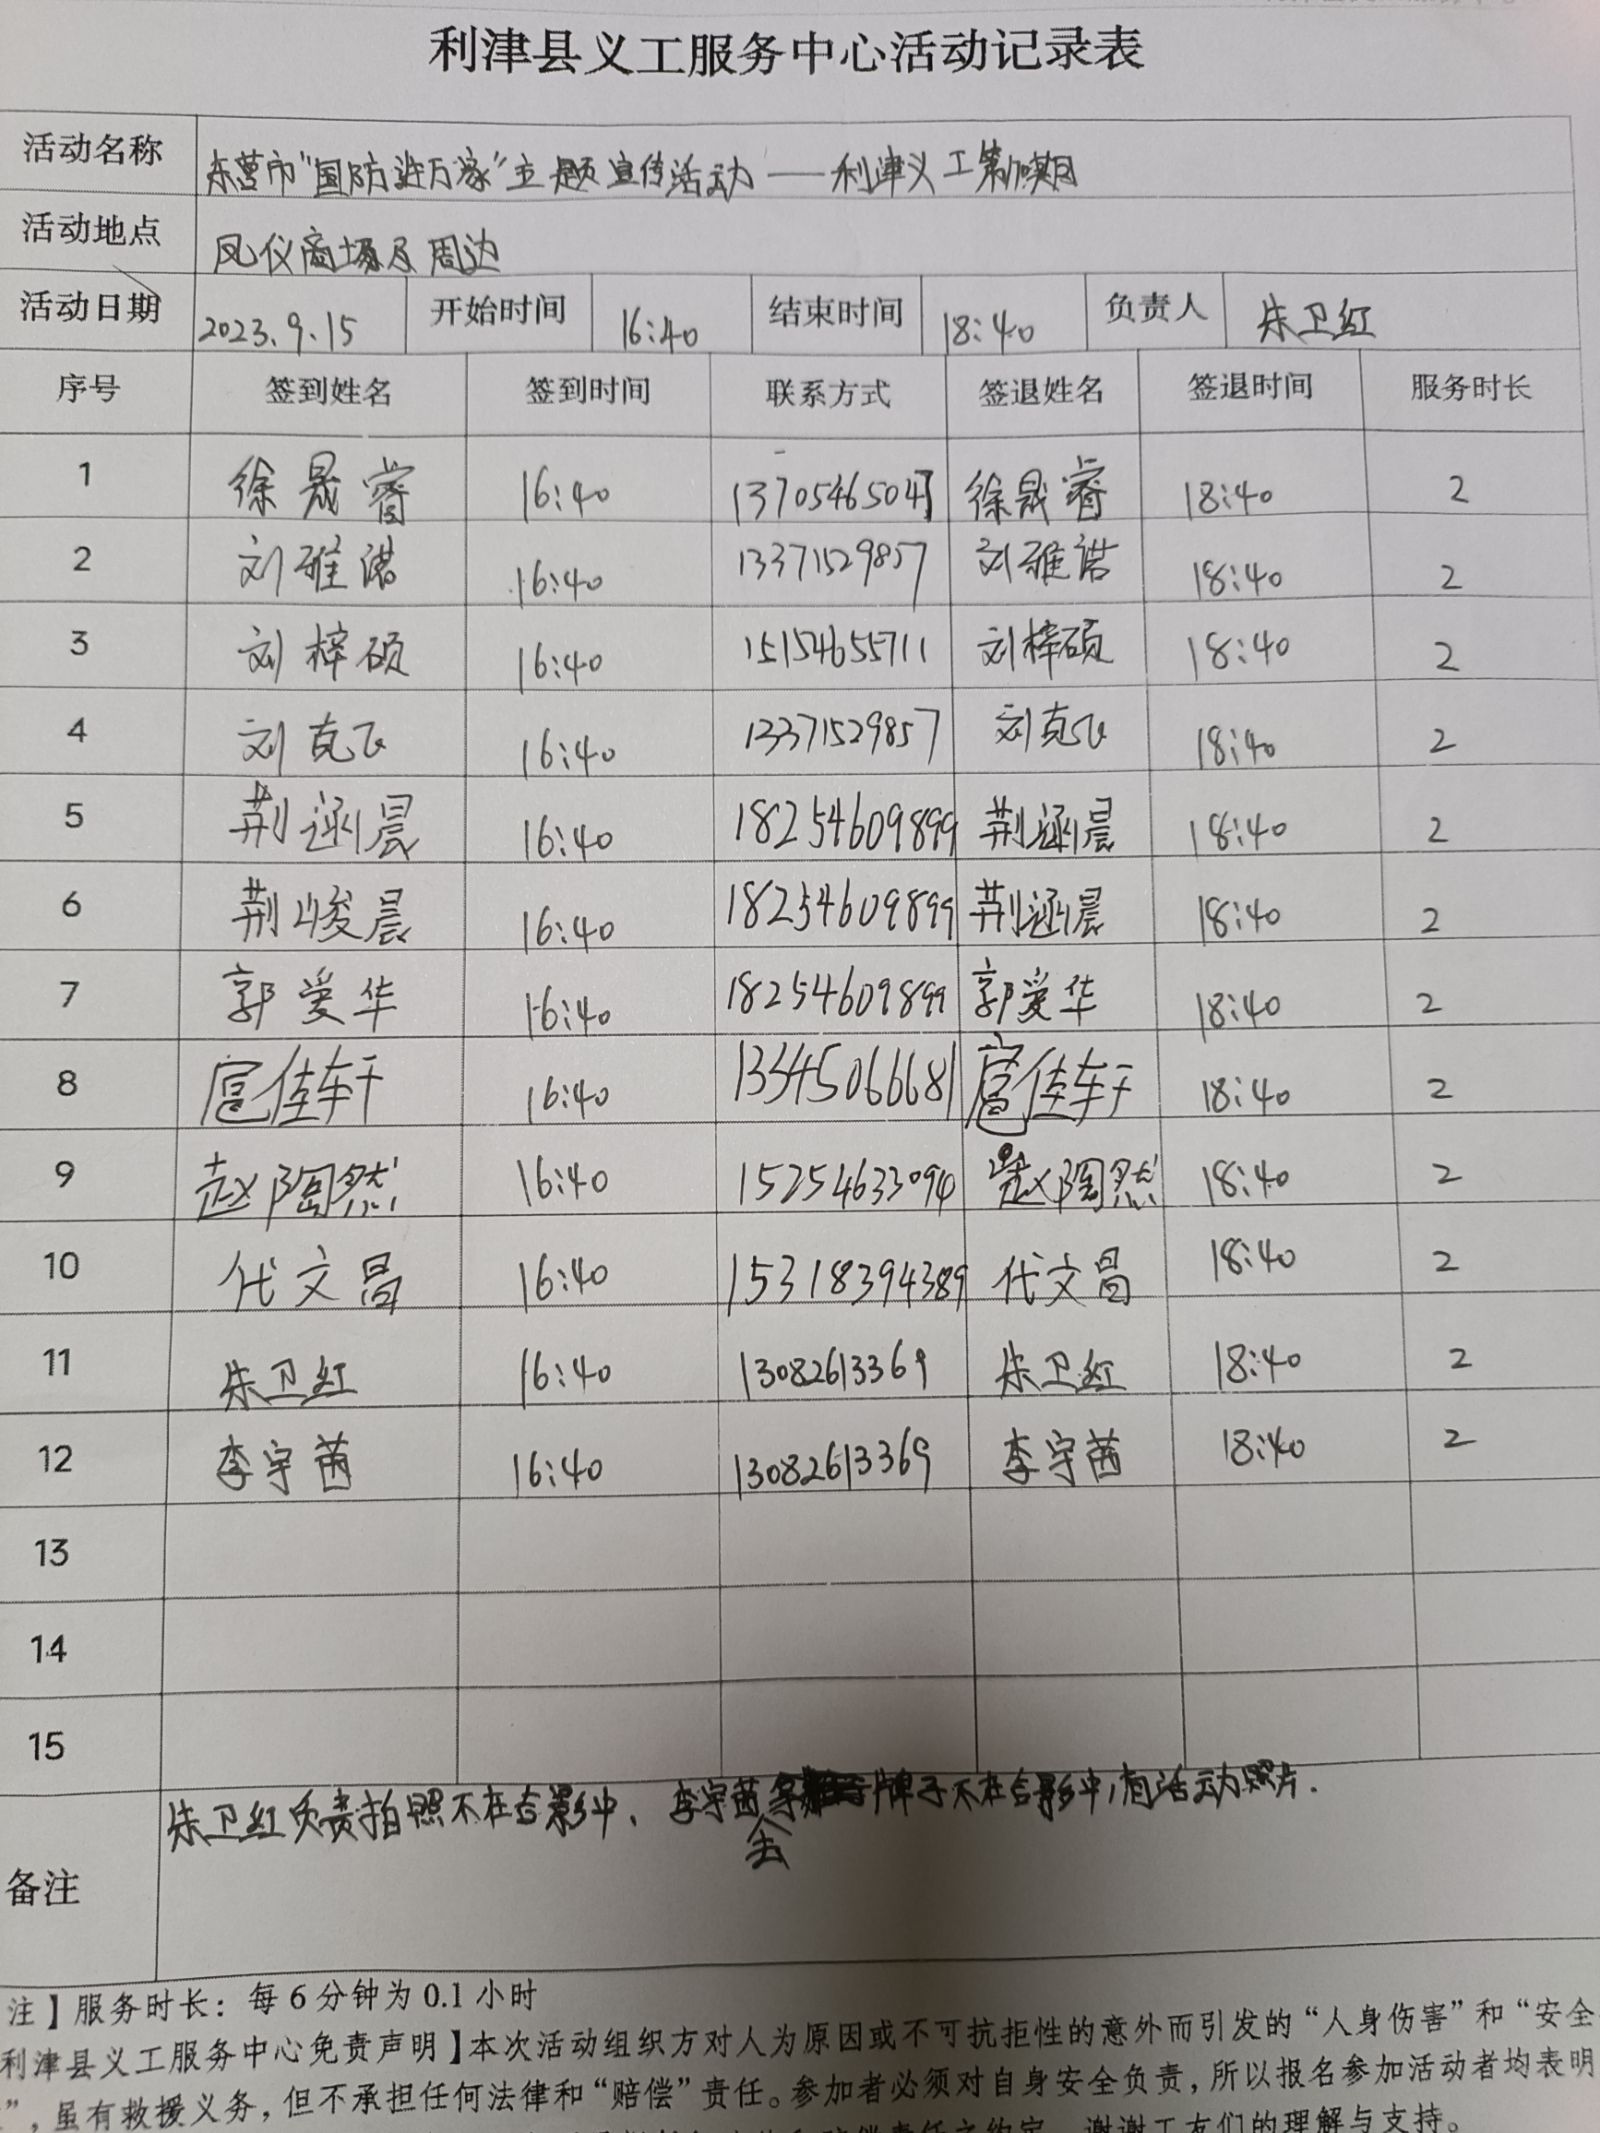 利津县义工服务中心活动记录表
活动名称 东营市"国防进万家"主题宣传活动——利津义工第 期
活动地点 凤仪商场及周边
活动日期 2023.9.15 开始时间 16:40 结束时间 18:40 负责人 朱卫红
序号 签到姓名 签到时间 联系方式 签退姓名 签退时间 服务时长
1 徐晟睿 16:40 13705465047 徐晟睿 18:40 2
2 刘雅诺 16:40 13371529857 刘雅诺 18:40 2
3 刘梓硕 16:40 15154655711 刘梓硕 18:40 2
4 刘克飞 16:40 13371529857 刘克飞 18:40 2
5 荆涵晨 16:40 18254609899 荆涵晨 18:40 2
6 荆峻晨 16:40 18254609899 荆涵晨 18:40 2
7 郭爱华 16:40 18254609899 郭爱华 18:40 2
8 扈佳轩 16:40 13345066681 扈佳轩 18:40 2
9 赵陶然 16:40 15254633094 赵陶然 18:40 2
10 代文昌 16:40 15318394389 代文昌 18:40 2
11 朱卫红 16:40 13082613369 朱卫红 18:40 2
12 李宇茜 16:40 13082613369 李宇茜 18:40 2
13
14
15
备注 朱卫红负责拍照不在合影中、李宇茜去 牌子不在合影中,有活动照片.
注】服务时长：每6分钟为0.1小时
利津县义工服务中心免责声明】本次活动组织方对人为原因或不可抗拒性的意外而引发的“人身伤害”和“安全
”，虽有救援义务，但不承担任何法律和“赔偿”责任。参加者必须对自身安全负责，所以报名参加活动者均表明
谢谢工友们的理解与支持。